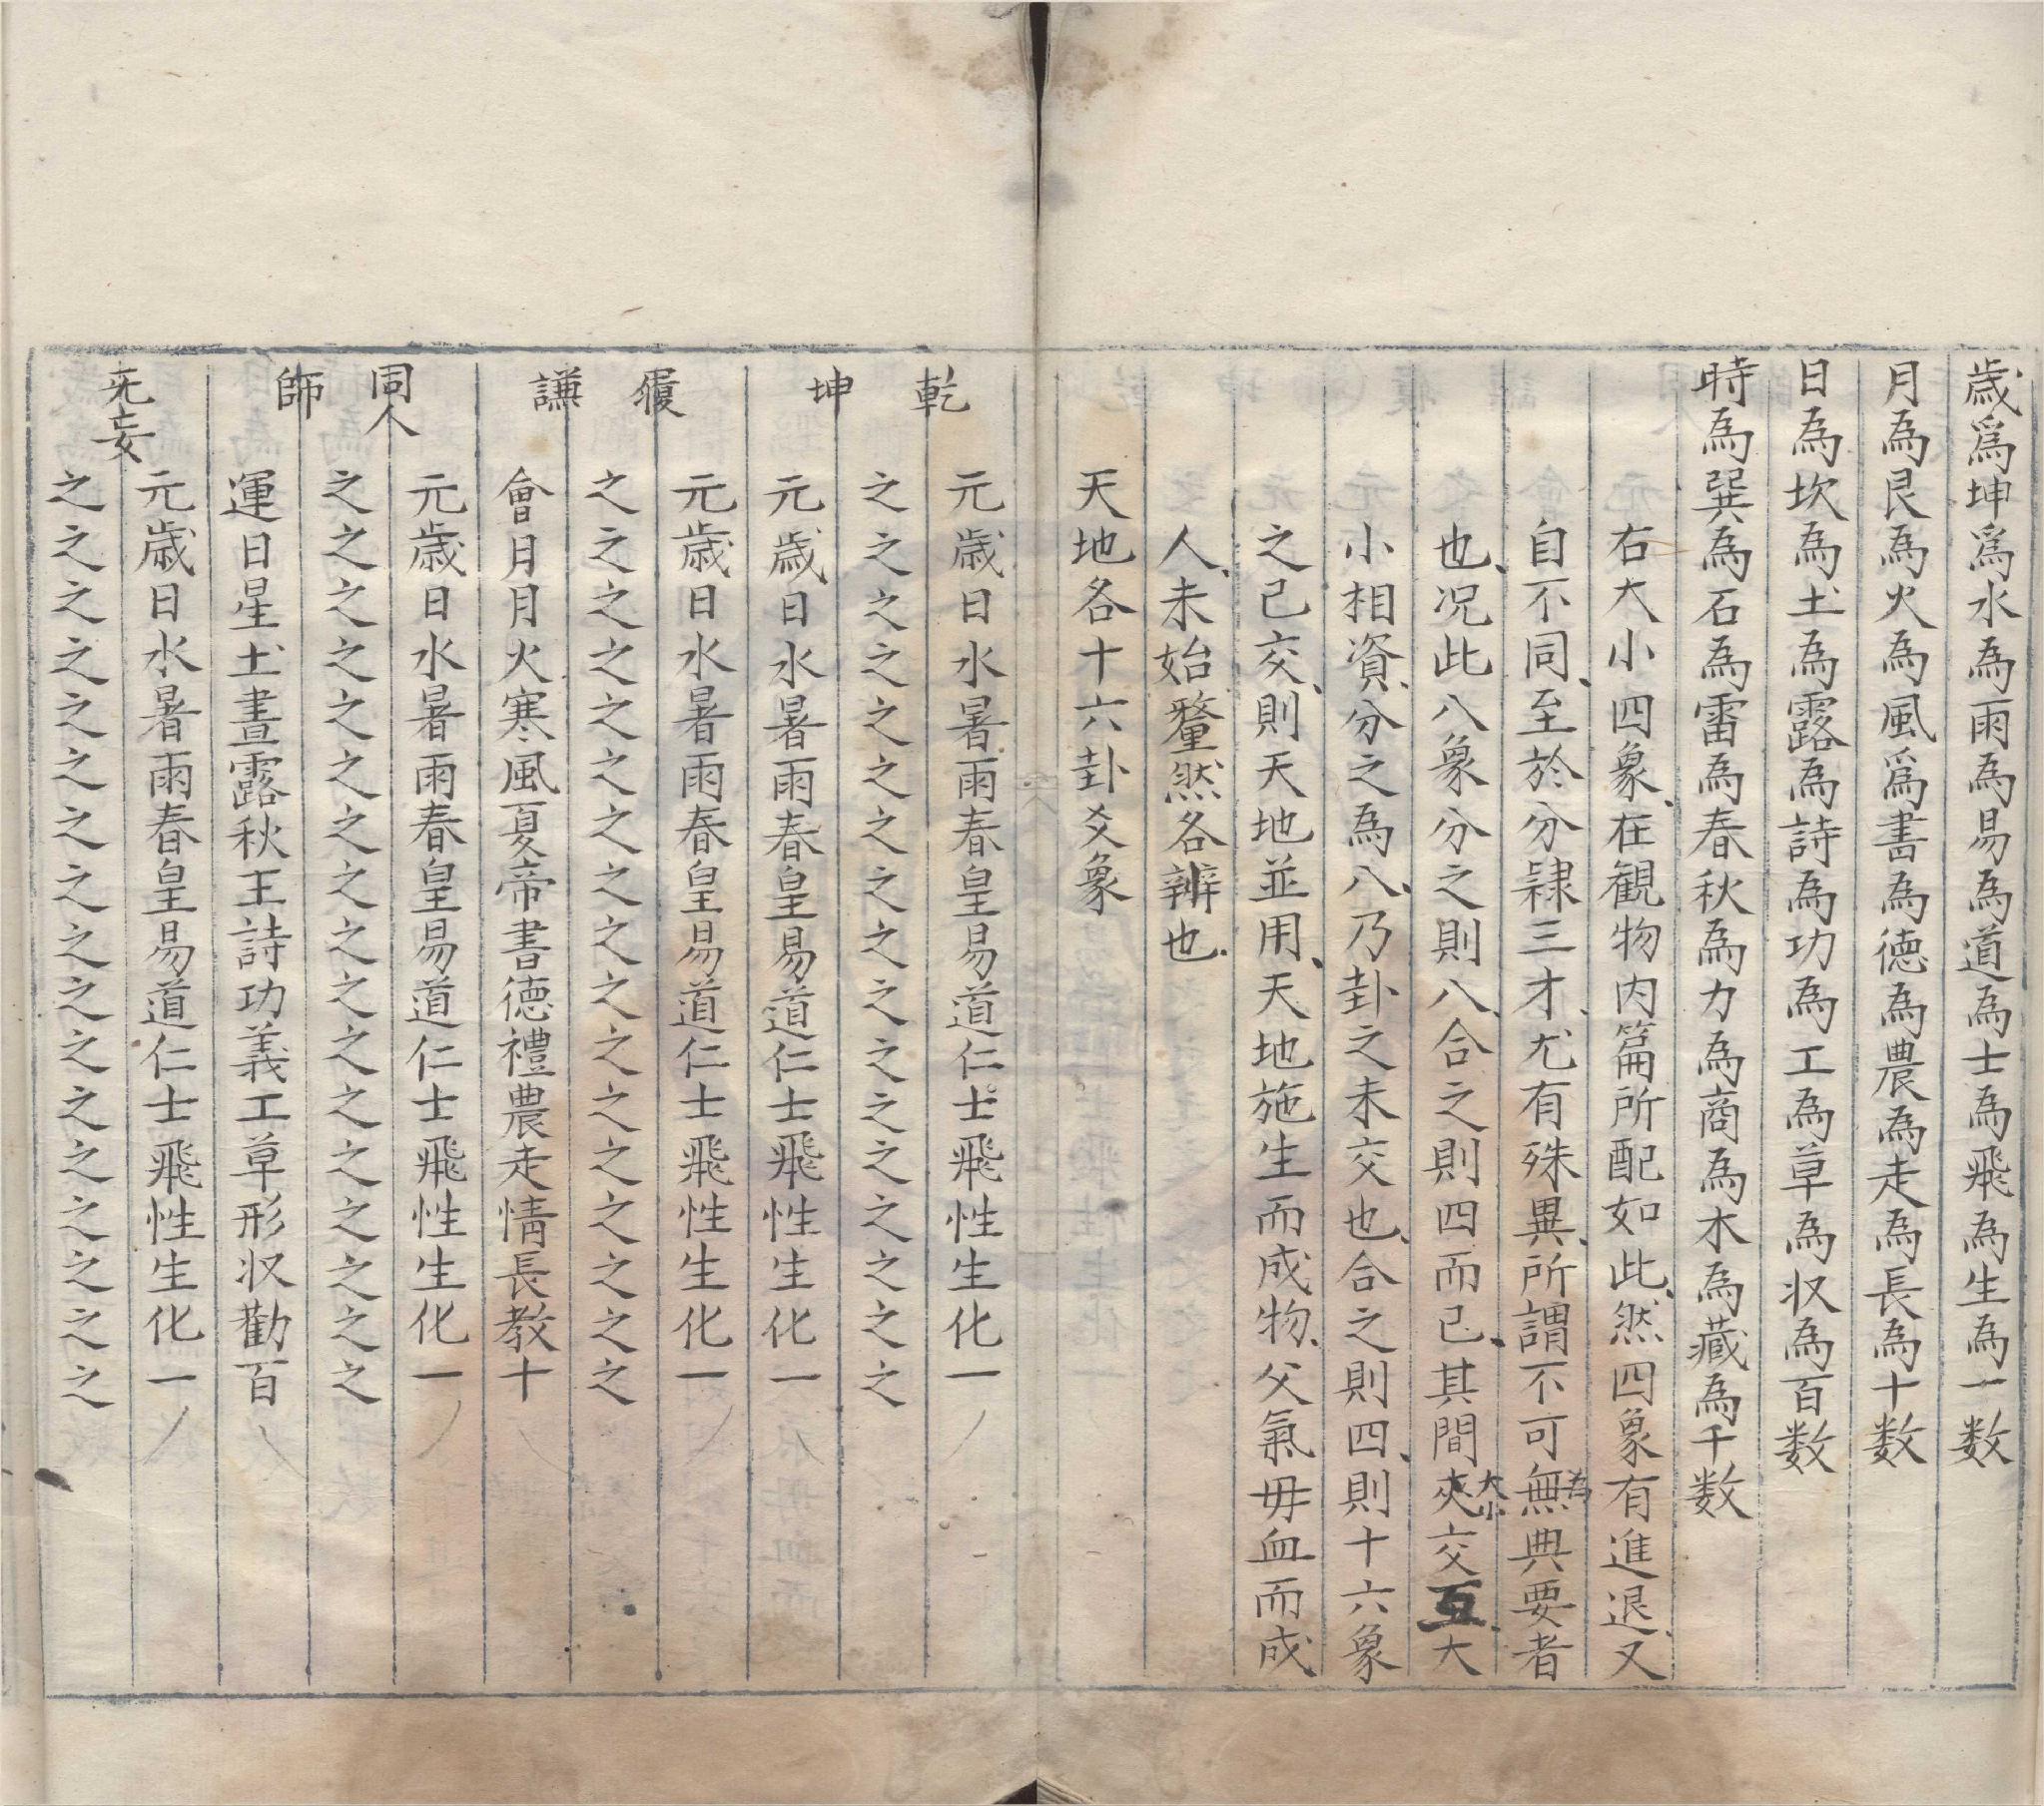 歳爲坤爲水為雨為易為道為士為飛為生為一数
月為艮為火為風爲書為德為農為走為長為十数
日為坎為土為露為詩為功為工為草為収為百数
時為巽為石為雷為春秋為力為商為木為藏為千数
右大小四象、在観物内篇所配如此、然四象有進退、又
自不同、至於分隸三才、尤有殊異、所謂不可為無典要者
也、况此八象分之則八、合之則四而已、其間大小夾交互、大
小相資、分之為八、乃卦之未交也、合之則四、則十六象
之已交、則天地並用、天地施生而成物、父氣毋血而成
人、未始釐然各辨也、
天地各十六卦爻象
乾
元歳日水暑雨春皇易道仁士飛性生化一
之之之之之之之之之之之之之之之之之
坤
元歳日水暑雨春皇易道仁士飛性生化一
履
元歳日水暑雨春皇易道仁士飛性生化一
之之之之之之之之之之之之之之之之之
謙
會月月火寒風夏帝書德禮農走情長教十
同人
元歳日水暑雨春皇易道仁士飛性生化一
之之之之之之之之之之之之之之之之之
師
運日星土晝露秋王詩功義工草形収勸百
无妄
元歳日水暑雨春皇易道仁士飛性生化一
之之之之之之之之之之之之之之之之之